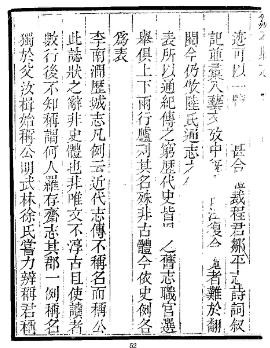 迹可以一時甚合歲程君鄒平志詩詞敘
記通彙入藝文攷中者難於翻
閱今仍倣陸氏通志之
表所以通紀傳之窮歷代史皆之舊志職官選
舉俱上下兩行臚列其名殊非古體今依史例各
爲表
李南澗歷城志凡例云近代志傳不稱名而稱公
此誌狀之辭非史體也非唯文不淳古且使讀者
數行後不知稱謂何人羅存齋志其郡一例稱名
獨於父汝楫始稱公明武林徐氏嘗力辨稱君稱
52